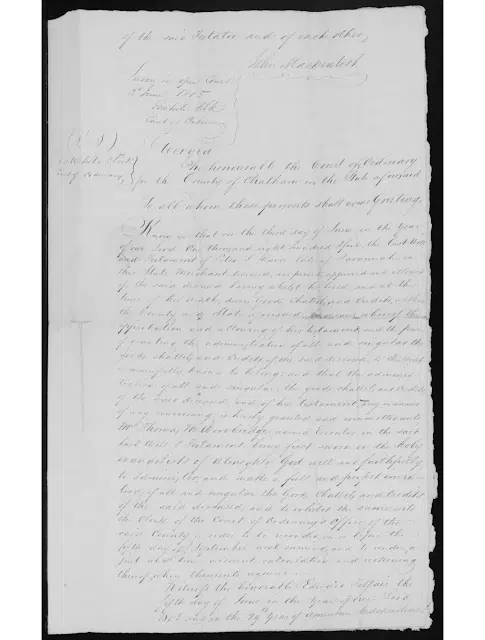 of the said Testator and of each other,
John Mackintosh
Sworn in open Court
5th June 1805
White Clk
Court of Ordinary
Georgia
(L S)
White Clerk
Court of Ordinary
The honourable the Court of Ordinary
for the County of Chatham in the State aforesaid
To all whom these presents shall come Greeting
Know ye that on the third day of June in the Year
of our Lord One thousand eight hundred & five the Last Will
and Testament of late of Savannah in
this State Merchant deceased, was proved approved and allowed
of the said deceased having whilst he lived and at the
time of his death, divers Goods Chattels and Credits within
the County and State aforesaid by means whereof the
approbation and allowing of his testament, and the power
of granting the administration of all and singular the
goods chattels and Credits of the said deceased to the Court
is manifestly known to belong and that the adminis
tration of all and singular the goods chattels and Credits
of the said deceased and of his testament any manner
of way concerning, is hereby granted and committed unto
Mr Thomas M Woodbridge named Executor in the said
Last Will & Testament, being first sworn on the Holy
evangelists of Almighty God well and faithfully
to administer, and make a full and perfect inven
tory of all and singular the Goods Chattels and Credits
of the said deceased, and to exhibit the same into
the Clerk of the Court of Ordinary's Office of the
said County in order to be recorded on or before the
fifth day of September next ensuing, and to render a
just and true account, calculation and reckoning
thereof when thereunto required
Witness the Honorable Edward Telfair the
fifth day of June in the Year of our Lord
1805 and in the 29th Year of American Independence